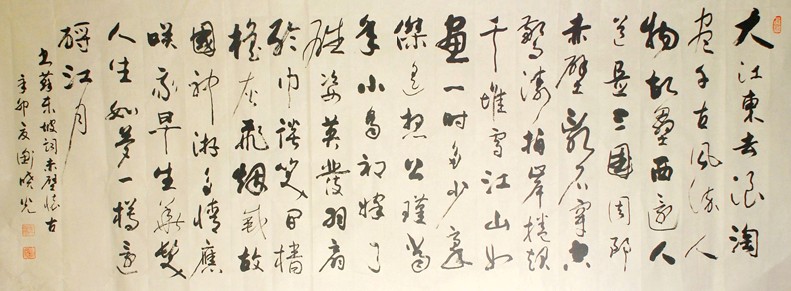 大江東去浪淘
盡千古風流人
物故壘西邊人
道是三國周郎
赤壁亂石穿空
驚濤拍岸捲起
千堆雪江山如
畫一時多少豪
傑遙想公瑾當
年小喬初嫁了
雄姿英發羽扇
綸巾談笑間檣
櫓灰飛烟滅故
國神游多情應
咲我早生華髮
人生如夢一樽還
酹江月
書蘇東坡詞赤壁懷古
辛卯夏